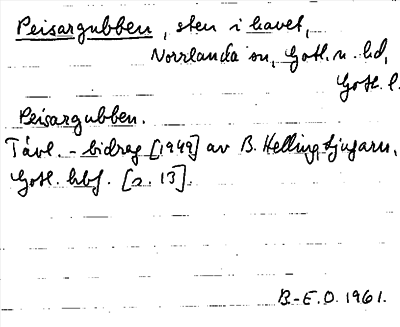 Peisargubben, sten i havet,
Norrlanda sn, Gotl. n. hd,
Gotl. l.
Peisargubben.
Tävl. - bidrag [1949] av B. Helling, Ljugarn,
Gotl. hbf. [s. 13].
B.-E.O. 1961.